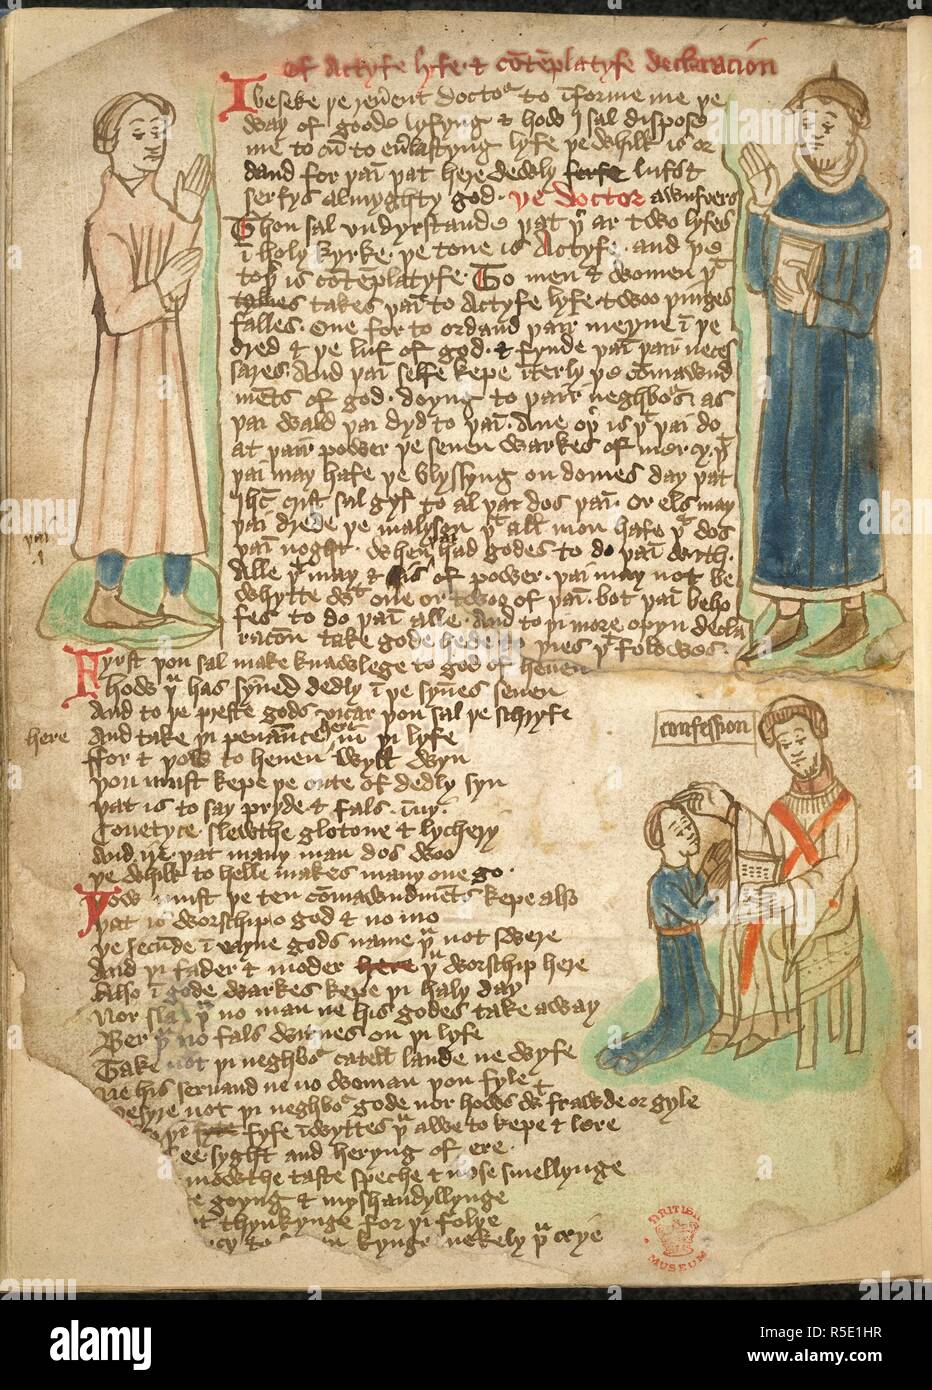 Of Actyfe lyfe & cõtẽplatyfe declaracion
I beseke ye reuerent doctor to ĩforme me ye
way of goode lyfyng & how I sal dispose
me to cũ to eu͛lastyng lyfe ye whilk is or
dand for þaĩ þat here dewly lufst
serfys almyghty god. ye doctor awnswers
Thou sal vndyrstande þat þr ar two lyfes
ĩ holy kyrke. þe tone is Actyfe. and þe
toþr is cõtẽplatyfe. To men & women þt
takes þaĩ to Actyfe lyfe two þinges
falles. One for to ordand þair meyne ĩ þe
dred & þe luf of god. & fynde þaĩ þair neces
sares. And þai selfe kepe ẽterly þe cõmawnd
mẽts of god. doyng to þair neghbors as
þai wald þai dyd to þaĩ. Ane oþr is þt þai do
at þair power þe seuen warkes of mercy. þt
þai may hafe þe blyssyng on domes day þat
ihc crist sal gyf to al þat dos þaĩ. Or els may
þai drede þe malyson þt all mon hafe þt dos
þaĩ noght. When þai had godes to do þaĩ with.
Alle þt may & is of power. þai may not be
whytte wt one or twoo of þaĩ. bot þaĩ beho
fes to do þaĩ alle. And to þi more opyn decla
racõn take gode hede to þies þt folowos.
Fyrst þou sal make knawlege to god of heuen
How þu has synned dedly ĩ þe synes seuen
And to þe preste gods vicar þou sal þe schryfe
here And take þi penance ĩ þi lyfe
ffor & þow to heuen wyll wyn
þou must kepe þe oute of dedly syn
þat is to say pryde & fals ĩuy.
Couetyce. slewthe glotone & lychery
And ire. þat many man dos woo
þe whilk to helle makes many one go.
Yow must þe ten cõmawndmẽts kepe also
þat is worschip o god & no mo
þe secũde ĩ vayne gods name þu not swere
And þi fader & moder here þu worschip here
Also ĩ gode warkes kepe þi haly day
Nor sla þu no man ne his godes take away
Ber þu no fals witnes on þi lyfe
Take not þi neghbor catell lande ne wyfe
ne his seruand ne no woman þou fyle
desyre not þi neghbor gode nor hows wt frawde or gyle
fyfe ĩwyttes þu awe to kepe & lere
syght and heryng of ere.
mowthe taste speche & nose smellynge
goyng & myshandyllynge
thynkynge for þi folye
kynge mekely þu crye
confession
BRITISH MUSEUM
alamy
a
Image ID: R5E1HR
www.alamy.com